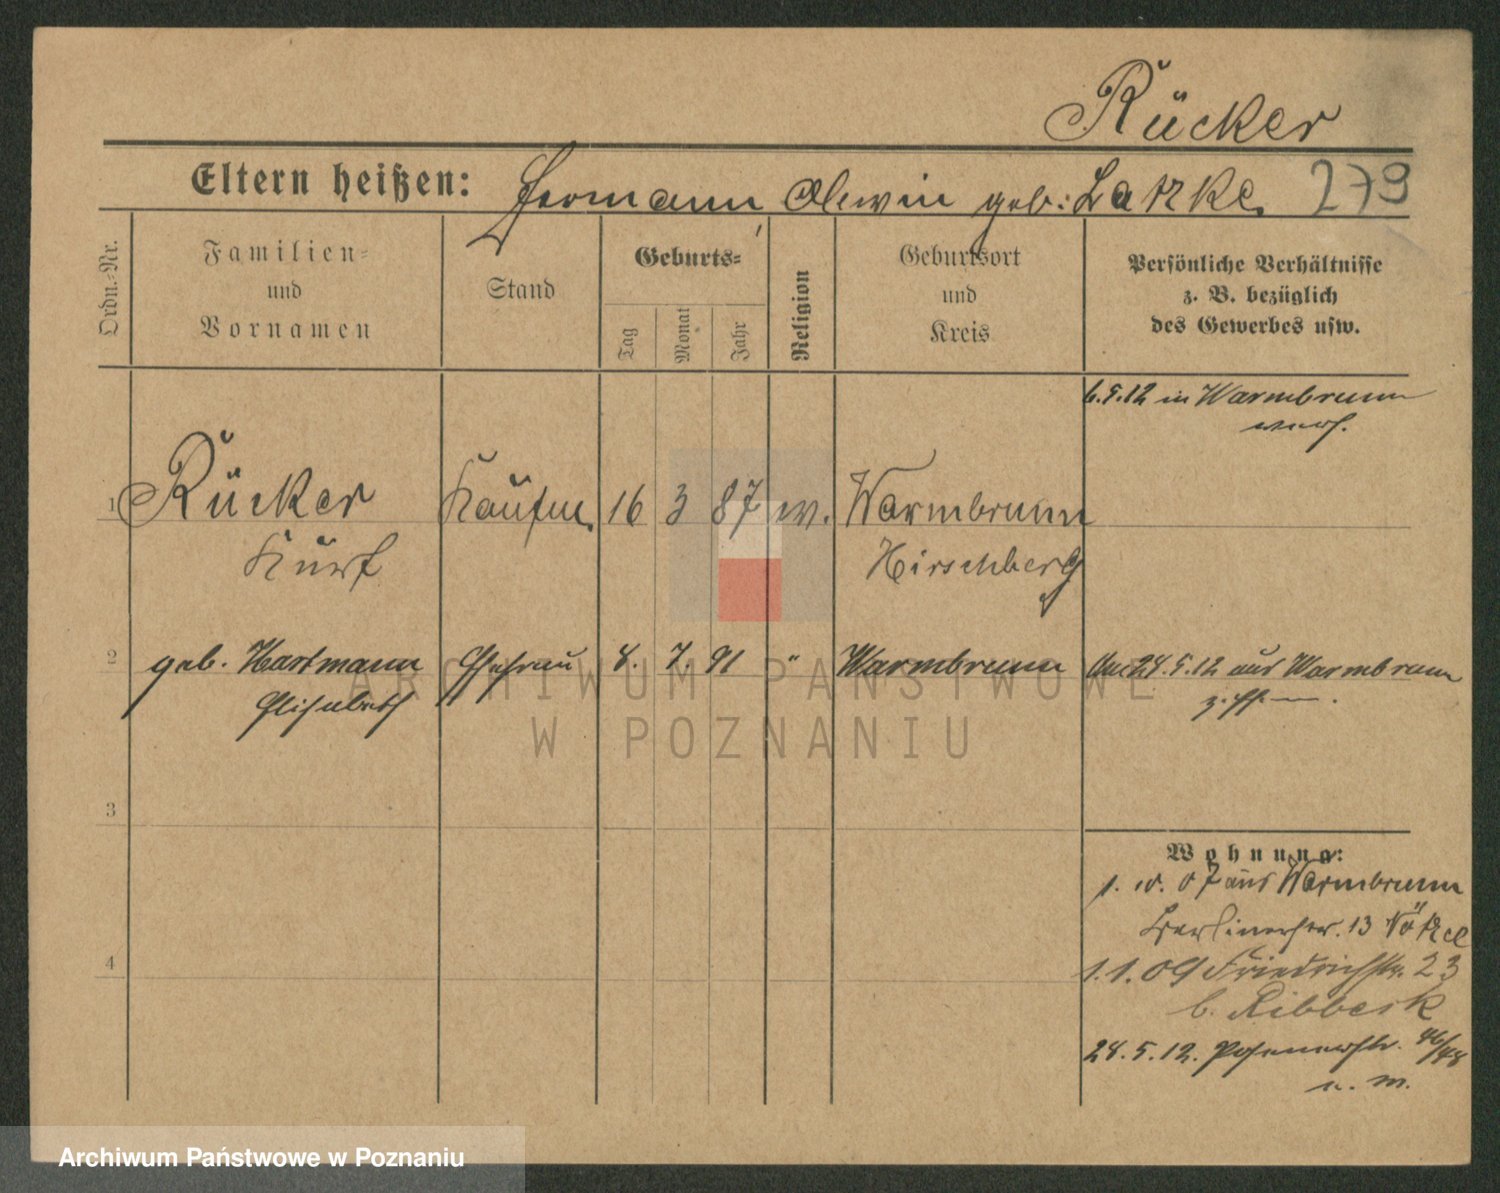 Rücker
Eltern heißen: Hermann Olewin geb: Latzke. 279
Ordn.-Nr.
Familien-
und
Vornamen
Stand
Geburts-
Tag
Monat
Jahr
Religion
Geburtsort
und
Kreis
Persönliche Verhältnisse
z. B. bezüglich
des Gewerbes usw.
6.5.12 in Warmbrunn
verh.
1 Rücker Kaufm. 16 3 87 ev. Warmbrunn
Kurt Hirschberg
2 geb. Hartmann Ehefrau 8. 7. 91 " Warmbrunn Am 28.5.12 aus Warmbrunn
Elisabeth
3
4
Wohnung:
1. 10. 07 aus Warmbrunn
Berlinerstr. 13
1.1.09 Friedrichstr. 23
b. Ribbeck
28.5.12. Posenerstr. 46/48
ARCHIWUM PAŃSTWOWE
W POZNANIU
Archiwum Państwowe w Poznaniu